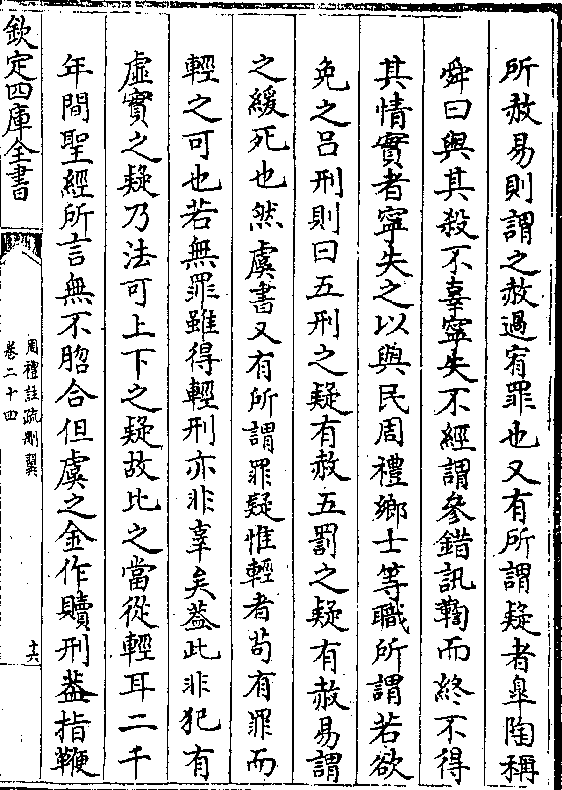 所赦易則謂之赦過宥罪也又有所謂疑者臯陶稱
舜曰與其殺不辜寧失不經謂參錯訊鞫而終不得
其情實者寧失之以與民周禮鄉士等職所謂若欲
免之吕刑則曰五刑之疑有赦五罰之疑有赦易謂
之緩死也然虞書又有所謂罪疑惟輕者茍有罪而
輕之可也若無罪雖得輕刑亦非辜矣葢此非犯有
虛實之疑乃法可上下之疑故比之當從輕耳二千
年間聖經所言無不脗合但虞之金作贖刑葢指鞭
欽定四庫全書
周禮註疏刪翼
卷二十四
十六